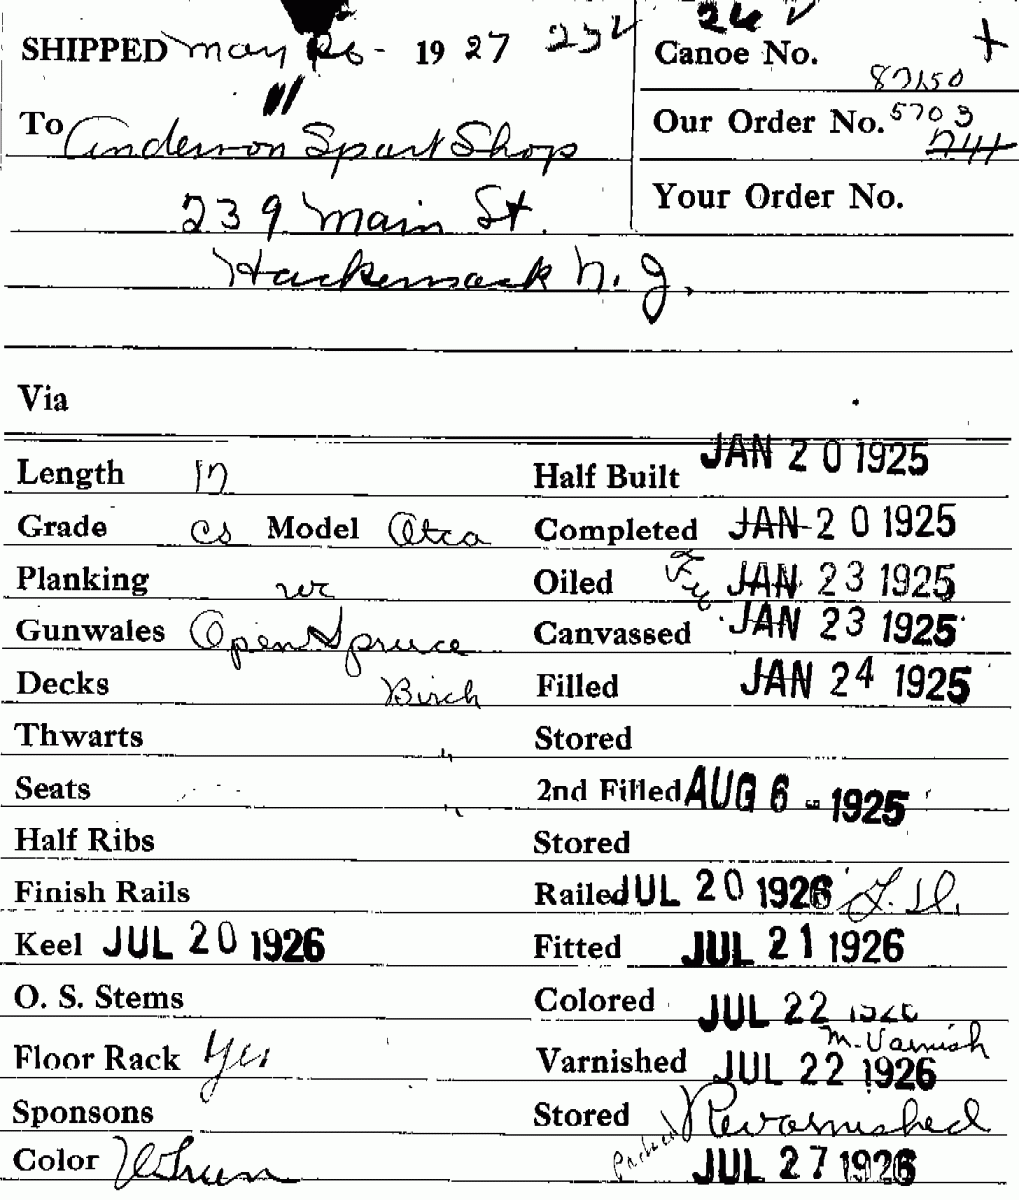 SHIPPED May 26 - 1927 232
26 ✓
Canoe No. 87650
To Anderson Sport Shop
Our Order No. 5703
711
239 Main St.
Your Order No.
Hackensack N. J.
Via
Length 17
Half Built JAN 20 1925
Grade CS Model Otca
Completed JAN 20 1925
Planking wr
Oiled JAN 23 1925
Gunwales Open Spruce
Canvassed JAN 23 1925
Decks Birch
Filled JAN 24 1925
Thwarts "
Stored
Seats "
2nd Filled AUG 6 - 1925
Half Ribs
Stored
Finish Rails
Railed JUL 20 1926
Keel JUL 20 1926
Fitted JUL 21 1926
O. S. Stems
Colored JUL 22 1926
Floor Rack Yes
M. Varnish
Varnished JUL 22 1926
Sponsons
Stored Revarnished
Color
Packed JUL 27 1926